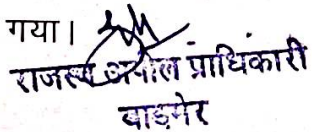 गया।
राजस्व अपील प्राधिकारी
बाड़मेर